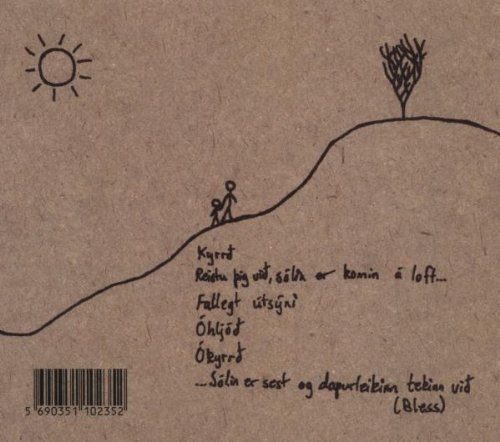 Kyrrð
Reistu þig við, sólin er komin á loft...
Fallegt útsýni
Óhljóð
Ókyrrð
...Sólin er sest og dapurleikinn tekinn við
(Bless)
5 690351 102352